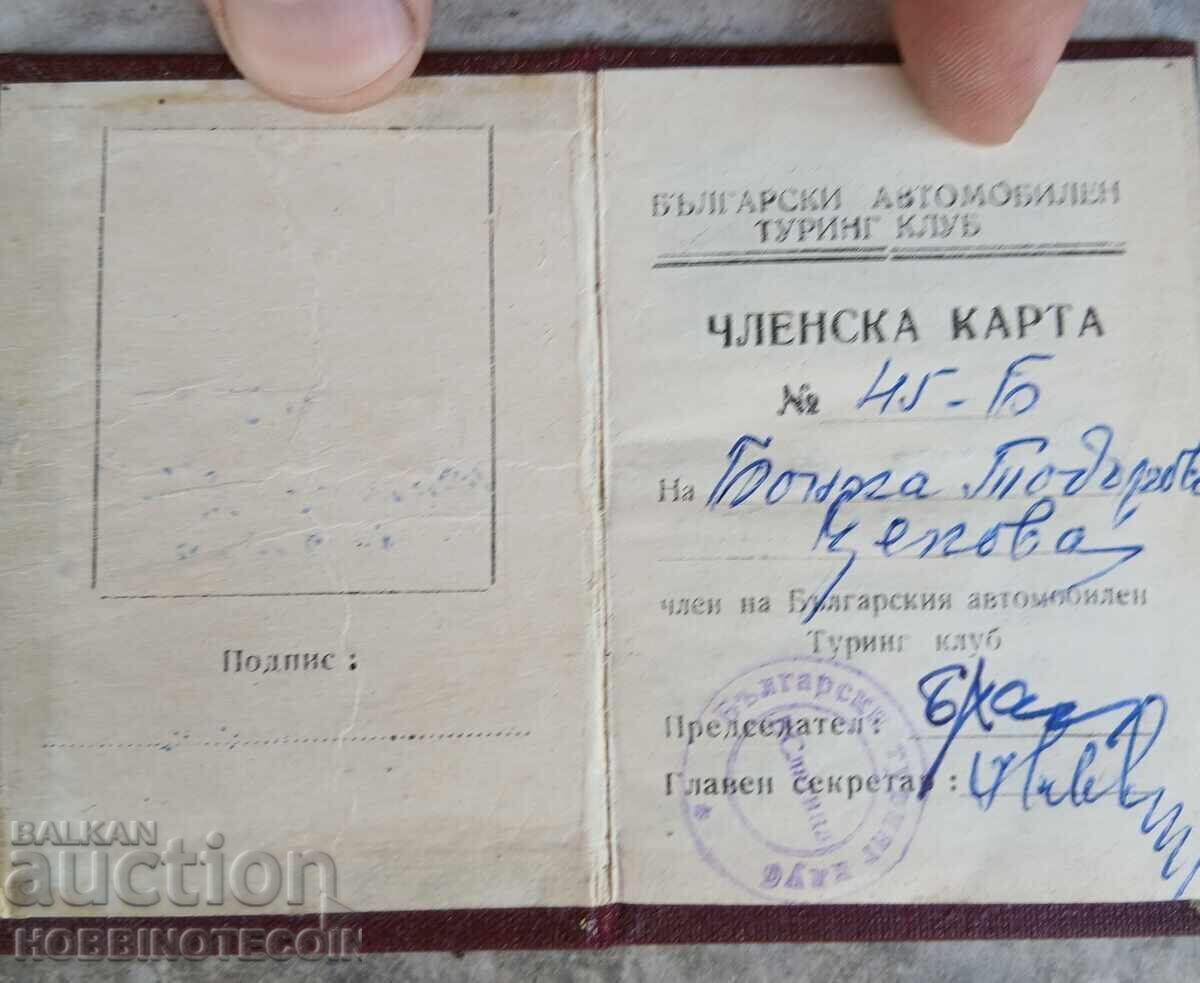 Подпис :
БЪЛГАРСКИ АВТОМОБИЛЕН
ТУРИНГ КЛУБ
ЧЛЕНСКА КАРТА
№ 45-Б
На Тодорова
Цекова
член на Българския автомобилен
Туринг клуб
Председател:
Главен секретар :
Български туринг клуб
BALKAN
auction
HOBBINOTECOIN